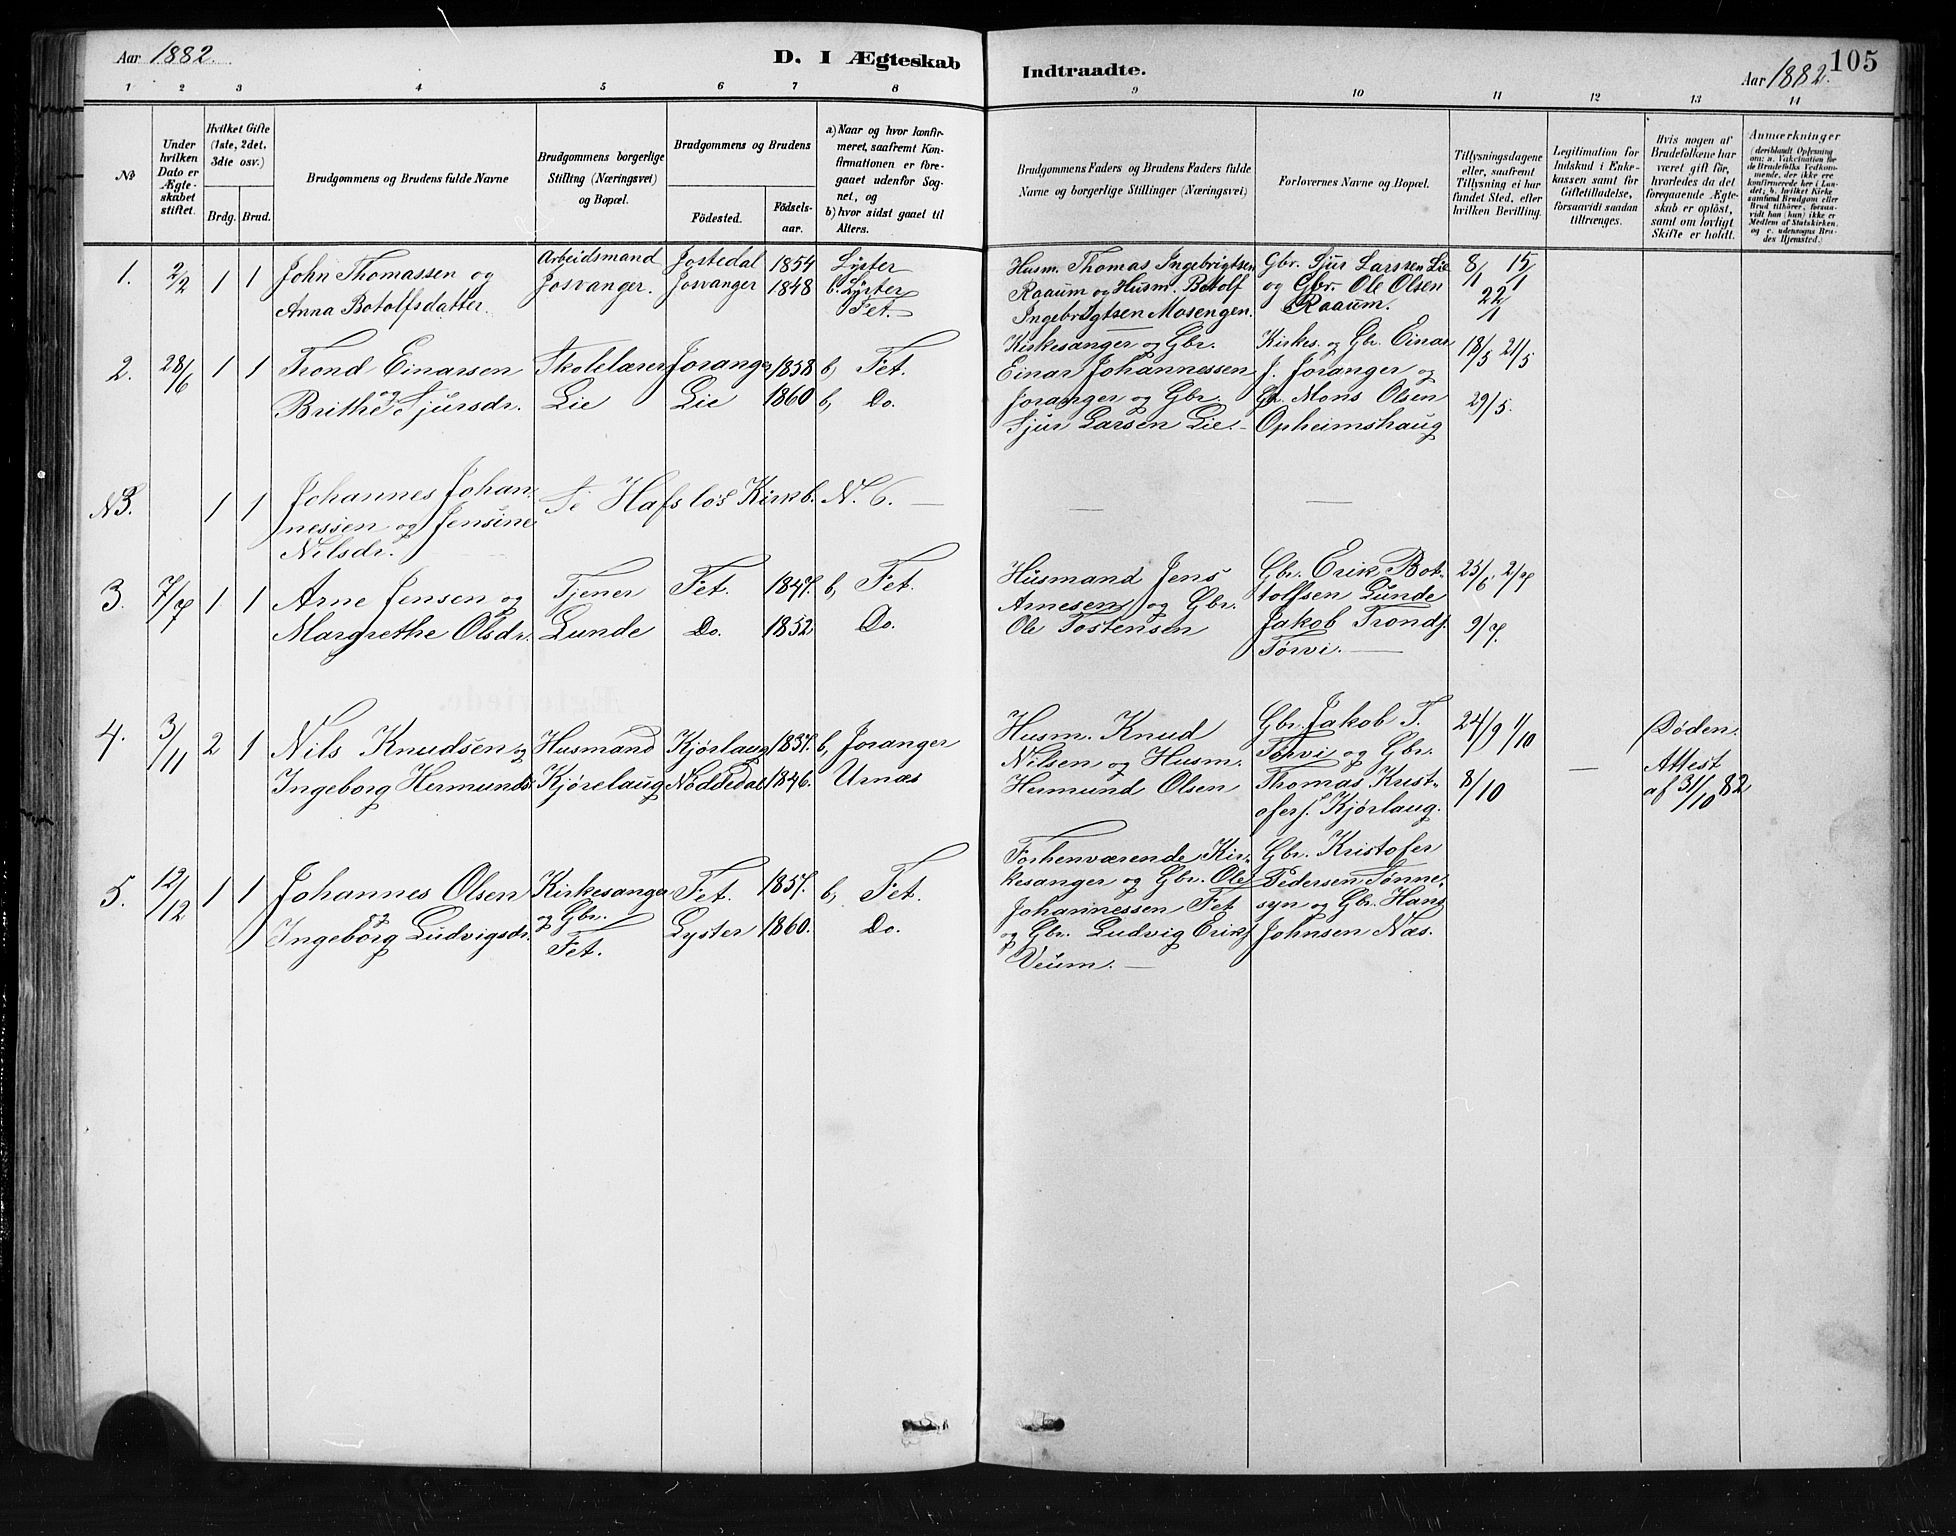 Aar 1882.
D. I Ægteskab
Indtraadte.
Aar 1882.
105
1 2 3 4 5 6 7 8
9 10 11 12 13 14
No
Under hvilken Dato er Ægteskabet stiftet.
Hvilket Gifte (1ste, 2det, 3die osv.)
Brdg. Brud.
Brudgommens og Brudens fulde Navne
Brudgommens borgerlige Stilling (Næringsvei) og Bopæl.
Brudgommens og Brudens
Födested.
Födsels-aar.
a) Naar og hvor konfirmeret, saafremt Konfirmationen er foregaaet udenfor Sognet, og
b) hvor sidst gaaet til Alters.
Brudgommens Faders og Brudens Faders fulde Navne og borgerlige Stillinger (Næringsvei)
Forlovernes Navne og Bopæl.
Tillysningsdagene eller, saafremt Tillysning ei har fundet Sted, efter hvilken Bevilling.
Legitimation for Indskud i Enkekassen samt for Giftetilladelse, forsaavidt saadan tiltrænges.
Hvis nogen af Brudefolkene har været gift för, hvorledes da det foregaaende Ægteskab er oplöst, samt om lovligt Skifte er holdt.
Anmærkninger
(deriblandt Oplysning om: a. Vakcination för de Brudefolks Vedkommende, der ikke ere konfirmerede her i Landet; b. hvilket Kirkesamfund Brudgom eller Brud tilhörer, forsaavidt han (hun) ikke er Medlem af Statskirken, og c. udensogns Brudes Hjemsted.)
1. 2/2 1 1 John Thomassen og
Anna Botolfsdatter.
Arbeidsmand
Josvanger.
Jostedal 1854
Josvanger 1848
Lyster
b. Lyster
Fet.
Husm. Thomas Ingebrigtsen
Raaum og Husm. Botolf
Ingebrigtsen Mosengen.
Gbr. Sjur Larssen Lie
og Gbr. Ole Olsen
Raaum.
8/1 15/1
22/1
2. 28/6 1 1 Trond Einarsen
og
Brithe Sjursdr.
Skolelærer
Lie
Joranger 1858
Lie 1860
b, Fet.
b, Do.
Kirkesanger og Gbr.
Einar Johannessen
Joranger og Gbr.
Sjur Larsen Lie.
Kirkes. og Gbr. Einar
J. Joranger og
Gbr. Mons Olsen
Opheimshaug
18/5 21/5
29/5.
N3. 1 1 Johannes Johan-
nessen og Jensine
Nilsdr.
Se Hafslos Kirkb. N. 6. —
— —
3. 7/7 1 1 Arne Jensen og
Margrethe Olsdr.
Tjener
Lunde
Fet. 1847.
Do. 1852
b, Fet.
Do.
Husmand Jens
Arnesen og Gbr.
Ole Tostensen
Gbr. Erik Bot-
tolfsen Lunde
Jakob Trondj.
Törvi. —
25/6. 2/7
9/7.
4. 3/11 2 1 Nils Knudsen og
Ingeborg Hermunds.
Husmand
Kjörelaug
Kjörlaug 1837.
Noddedal 1846.
b, Joranger
Urnæs
Husm. Knud
Nilsen og Husm.
Hermund Olsen
Gbr. Jakob T.
Törvi og Gbr.
Thomas Krist-
ofers. Kjörlaug.
24/9 1/10
8/10
—
Döden.
Attest
af 31/10 82
5. 12/12 1 1 Johannes Olsen
og
Ingeborg Ludvigsdr.
Kirkesanger
og Gbr.
Fet.
Fet. 1857.
Lyster 1860.
b, Fet.
Do.
Forhenværende Kir-
kesanger og Gbr. Ole
Johannessen Fet
og Gbr. Ludvig Eriks
Veum. —
Gbr. Kristofer
Pedersen Tönne-
syn og Gbr. Hans
Johnsen Næs.